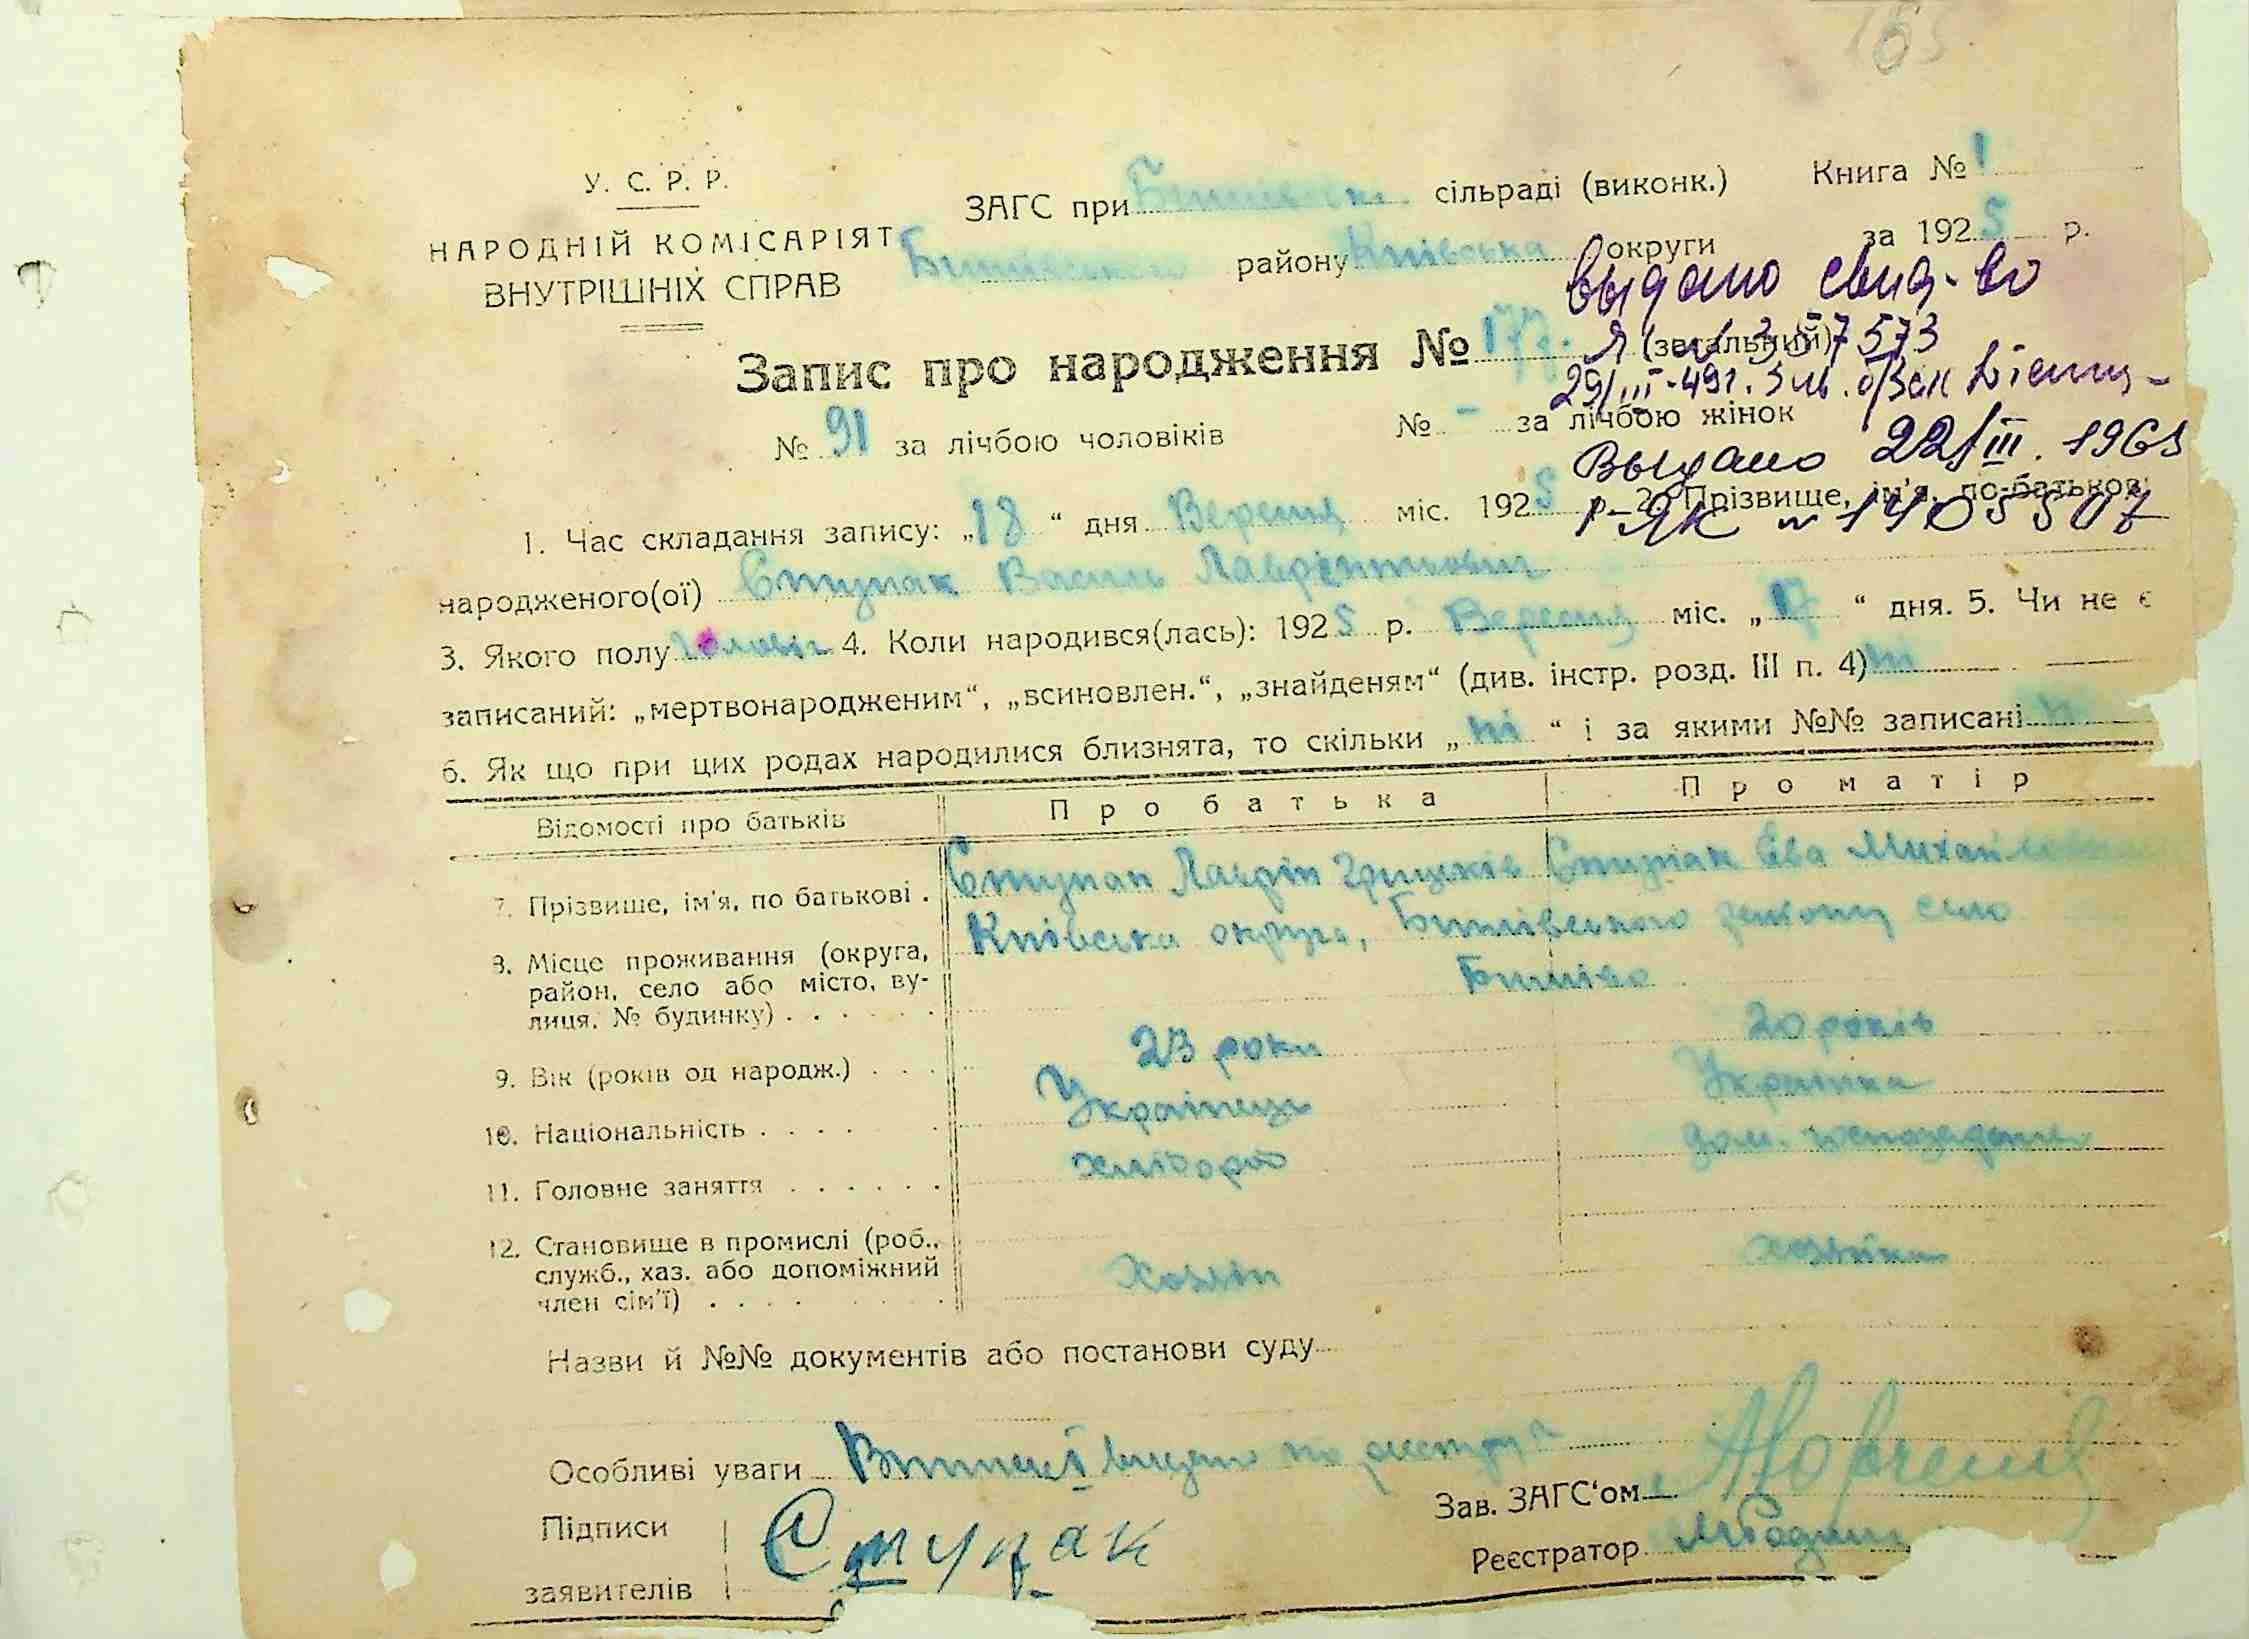 165
У. С. Р. Р.
НАРОДНІЙ КОМІСАРІЯТ
ВНУТРІШНІХ СПРАВ
ЗАГС при сільраді (виконк.) Книга № 1
району Київська округи за 1925 р.
выдано свид-во
Запис про народження № 177. (загальний)
Я 357573
29/III-49г.
№ 91 за лічбою чоловіків № - за лічбою жінок
Выдано 22/III. 196
1. Час складання запису: „18“ дня Вересня міс. 1925 р. 2. Прізвище, ім'я, по-батькові
Р-ЯК № 1405507
народженого(ої) Ступак Василь Лаврентьович
3. Якого полу чоловіч 4. Коли народився(лась): 1925 р. Вересня міс. „17“ дня. 5. Чи не є
записаний: „мертвонародженим“, „всиновлен.“, „знайденям“ (див. інстр. розд. III п. 4) ні
6. Як що при цих родах народилися близнята, то скільки „ні“ і за якими №№ записані
Відомості про батьків Про батька Про матір
7. Прізвище, ім'я, по батькові . Ступак Лаврін Грицьків Ступак Єва Михайловна
8. Місце проживання (округа, Київська округа, Бишівського району село
район, село або місто, ву-
лиця, № будинку) . . . . . . Бишів
9. Вік (років од народж.) . . . 23 роки 20 років
10. Національність . . . . . Українець Українка
11. Головне заняття . . . . . . хлібороб дом.
12. Становище в промислі (роб.,
служб., хаз. або допоміжний Хозяін хозяйка
член сім'ї) . . . .
Назви й №№ документів або постанови суду
Особливі уваги видано по реєстру
Зав. ЗАГС‘ом
Підписи Ступак
Реєстратор
заявителів